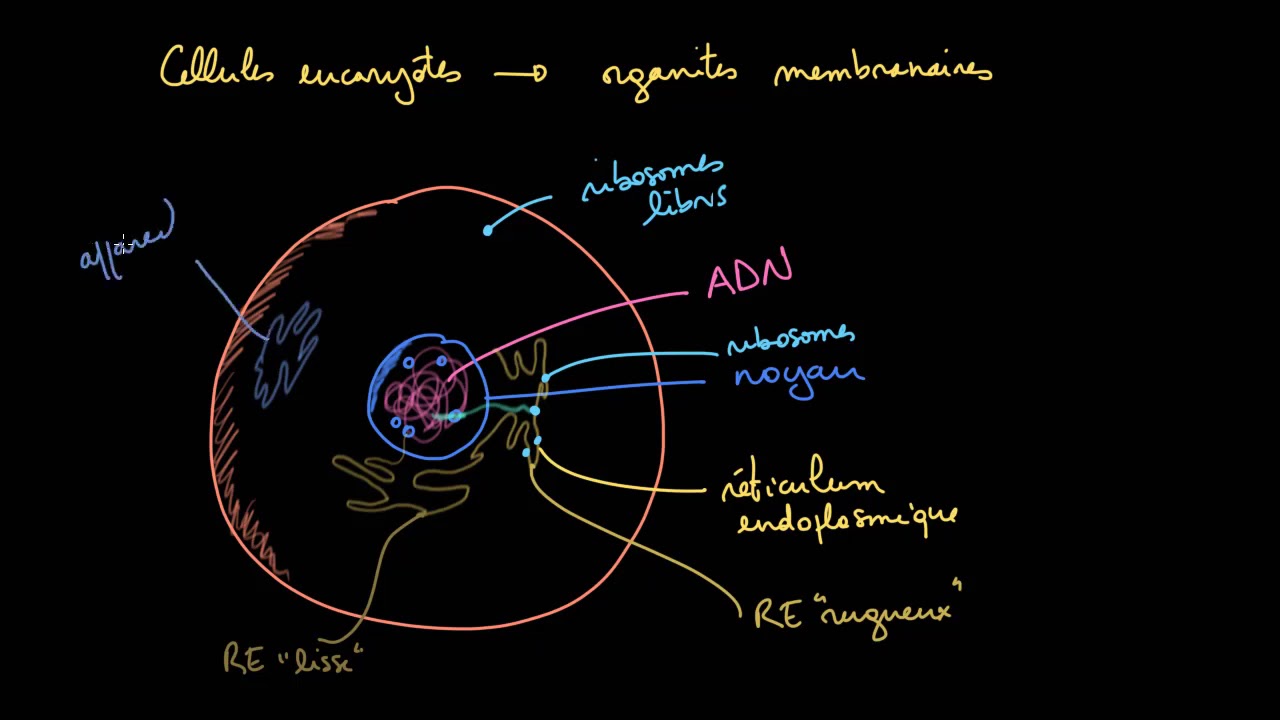 Cellules eucaryotes → organites membranaires
ribosomes
libres
appareil
ADN
ribosomes
noyau
réticulum
endoplasmique
RE "rugueux"
RE "lisse"